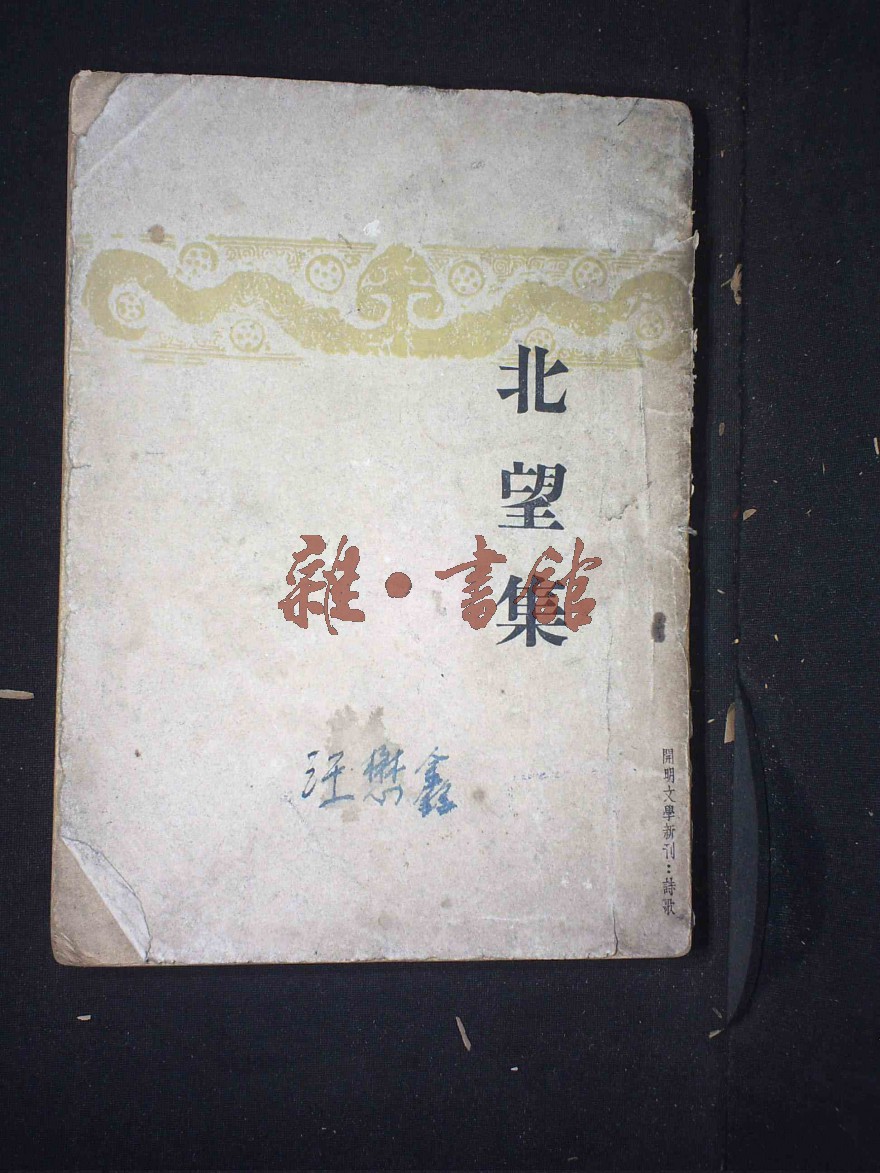 北望集
雜·書館
汪懋鑫
開明文學新刊：詩歌